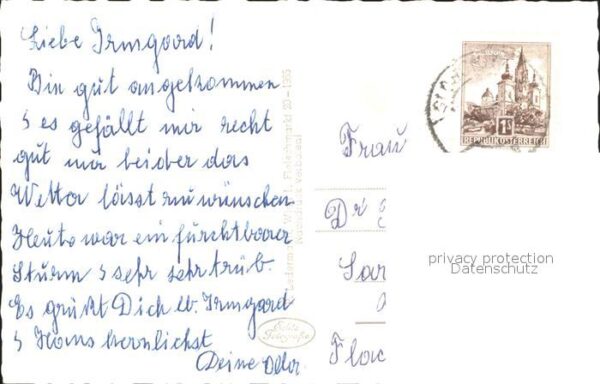 Liebe Irmgard!
Bin gut angekommen
s es gefällt mir recht
gut nur leider das
Wetter lässt zu wünschen
Heute war ein furchtbarer
Sturm s sehr sehr trüb.
Es grüßt Dich lb. Irmgard
s Hans herzlichst
Deine
Frau
Dr
Sar
Flac
1S
REPUBLIK ÖSTERREICH
Wien I., Fleischmarkt 20-1935
Nachdruck verboten!
Echte
Fotografie
privacy protection
Datenschutz